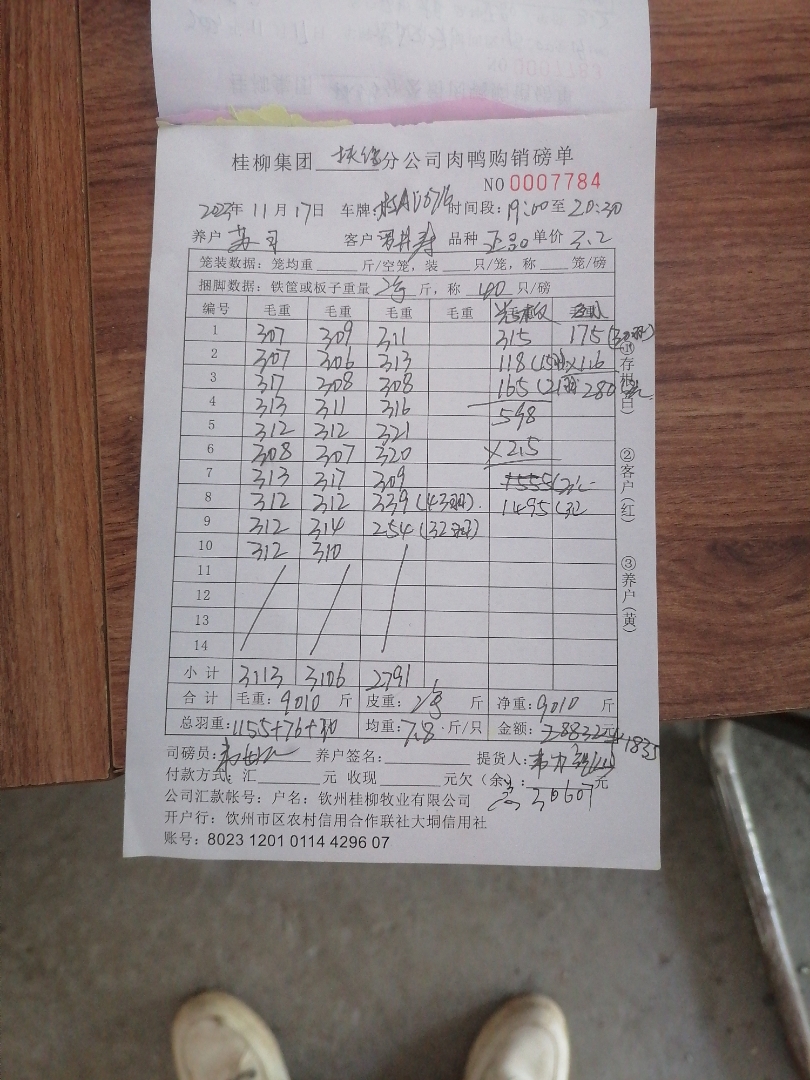 桂柳集团 扶绥 分公司肉鸭购销磅单
NO 0007784
2023年 11月17日 车牌: 时间段: 19:00 至 20:30
养户 苏 客户 品种 正品 单价 3.2
笼装数据: 笼均重 斤/空笼, 装 只/笼, 称 笼/磅
捆脚数据: 铁筐或板子重量 斤, 称 40 只/磅
编号 毛重 毛重 毛重 毛重
1 307 309 311 315 175 (30羽)
2 307 306 313 118 (15羽) ×1.6
3 317 308 308 165 (21羽) 280元
4 313 311 316 598
5 312 312 321
6 308 307 320 ×2.5
7 313 317 309
8 312 312 339 (43羽) 1495元
9 312 314 254 (32羽)
10 312 310
11
12
13
14
小计 3113 3106 2791
合计 毛重: 9010 斤 皮重: 斤 净重: 9010 斤
总羽重: 1155+76+30 均重: 7.8 斤/只 金额: 28832元+1835
司磅员: 养户签名: 提货人:
付款方式: 汇 元 收现 元欠(余): 元
30607
公司汇款帐号: 户名: 钦州桂柳牧业有限公司
开户行: 钦州市区农村信用合作联社大垌信用社
账号: 8023 1201 0114 4296 07
①存根(白)
②客户(红)
③养户(黄)